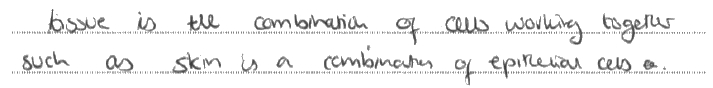 tissue is the combination of cells working together
such as skin is a combination of epithelial cells a.